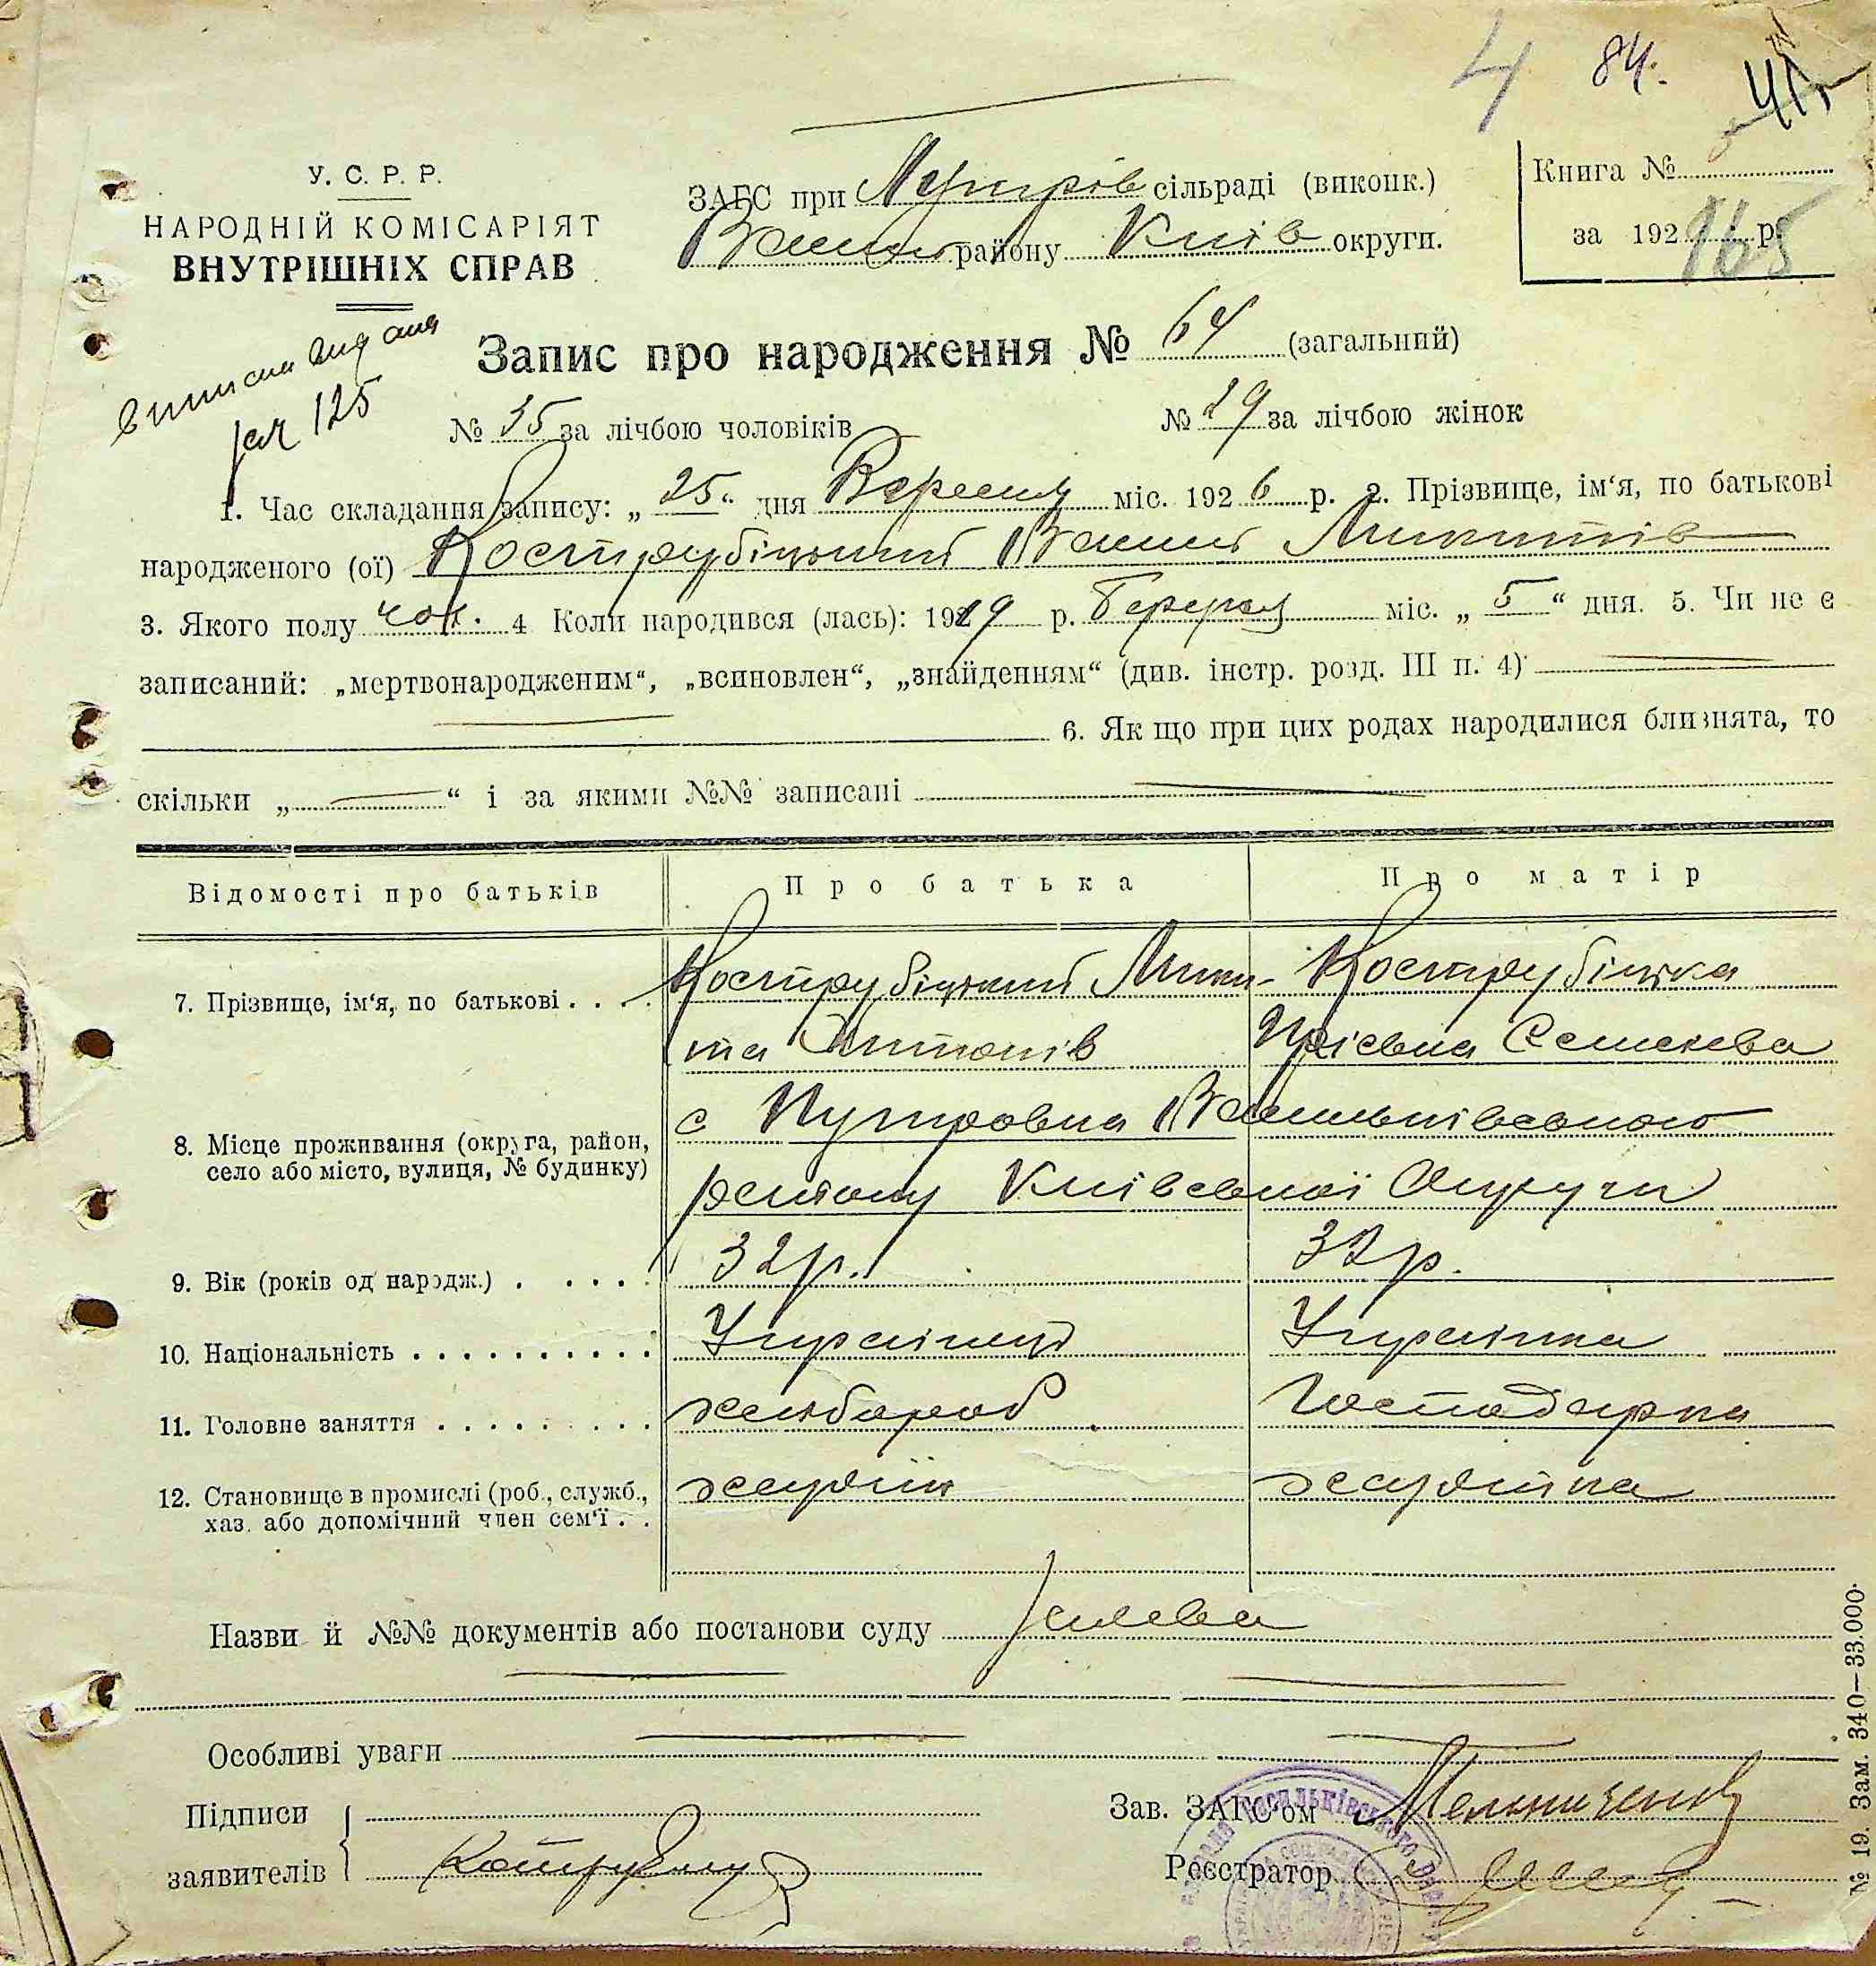 4 84.
У. С. Р. Р.
НАРОДНІЙ КОМІСАРІЯТ
ВНУТРІШНІХ СПРАВ
ЗАГС при сільраді (виконк.)
району Київ округи.
Книга №
за 192 р.
165
Запис про народження № 64 (загальний)
125
№ 35 за лічбою чоловіків № 29 за лічбою жінок
1. Час складання запису: „ 25 “ дня Вересня міс. 192 6 р. 2. Прізвище, ім‘я, по батькові
народженого (ої) Кострубіцький Микитів
3. Якого полу чол. 4 Коли народився (лась): 1919 р. Березня міс. „ 5 “ дня. 5. Чи не є
записаний: „мертвонародженим“, „всиновлен“, „знайденням“ (див. інстр. розд. III п. 4)
6. Як що при цих родах народилися близнята, то
скільки „ — “ і за якими №№ записані
Відомості про батьків Про батька Про матір
7. Прізвище, ім‘я, по батькові . . . . Кострубіцький Мики- Кострубіцка
та Антонів Семенова
8. Місце проживання (округа, район, с Путровка Васильківського
село або місто, вулиця, № будинку) району Київської Округи
9. Вік (років од народж.) . . . . . 32 р. 32 р.
10. Національність . . . . . . . . . . Українець Українка
11. Головне заняття . . . . . . . . хлібороб Господарка
12. Становище в промислі (роб., служб.,
хаз. або допомічний член сем‘ї . .
Назви й №№ документів або постанови суду Заява
Особливі уваги
Підписи
Зав. ЗАГС‘ом
заявителів
Реєстратор
№ 19. Зам. 340—33.000.